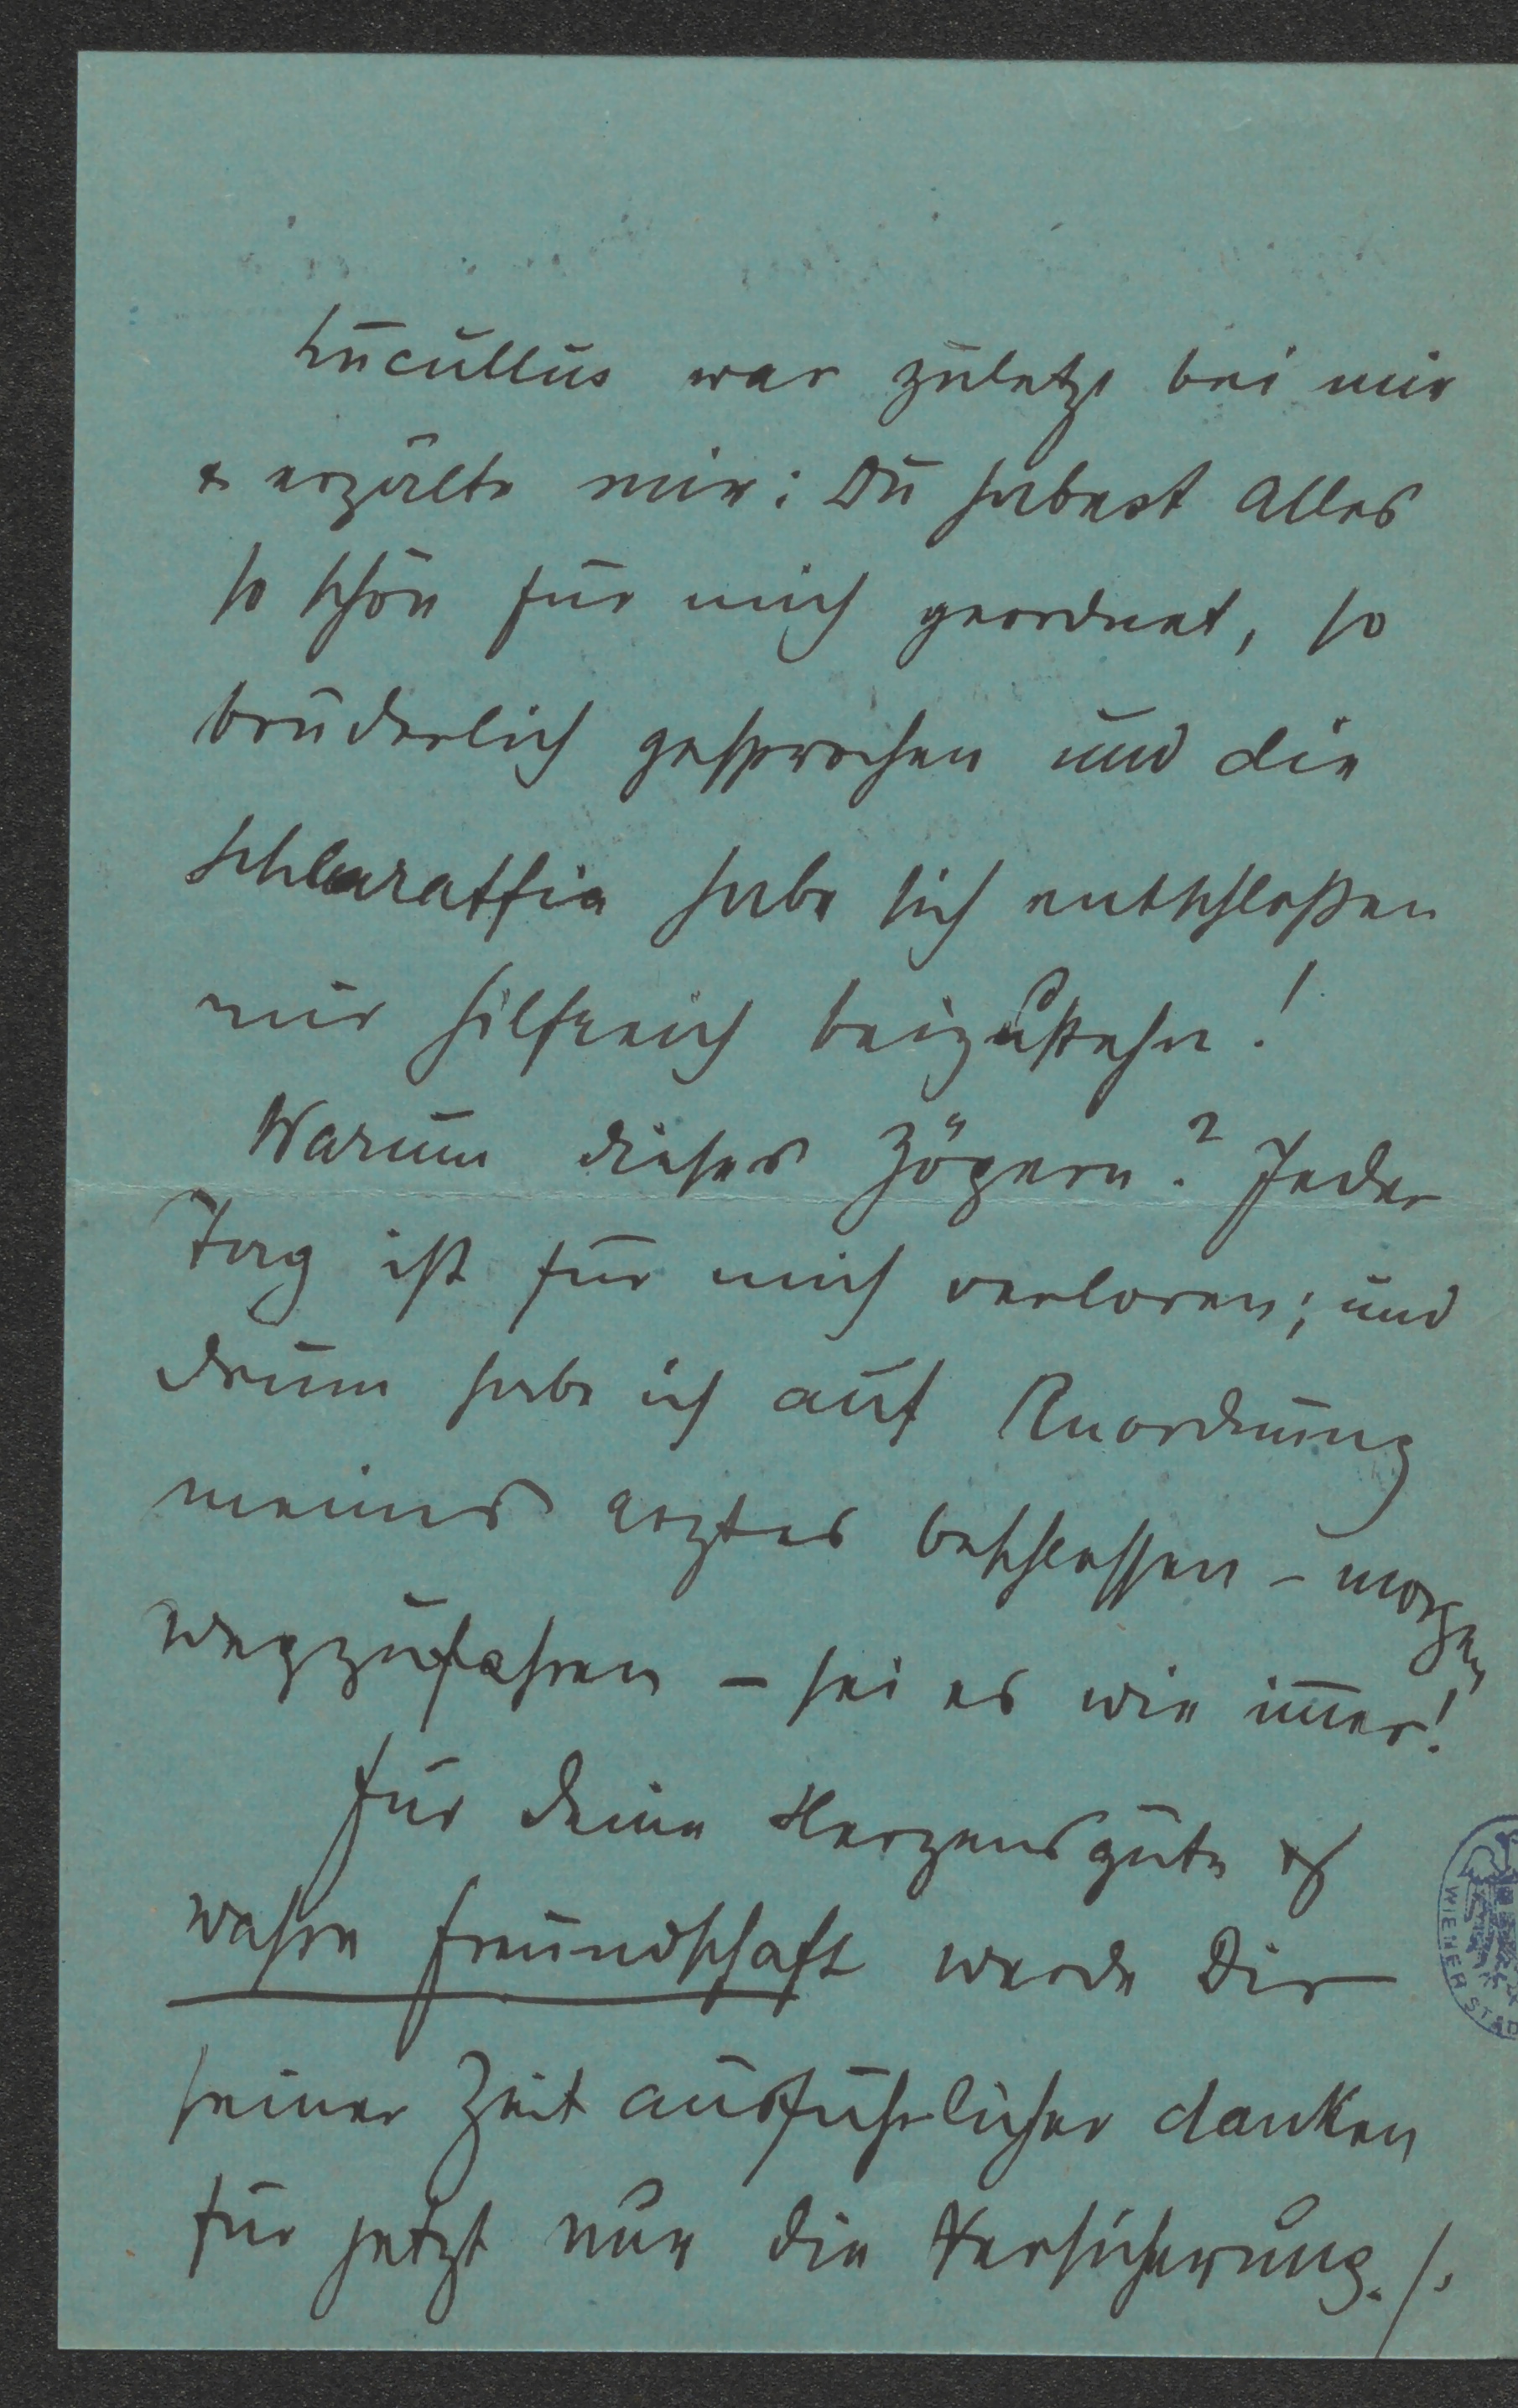 Lucullus war zuletzt bei mir
& erzälte mir: Du habest Alles
so schön für mich geordnet, so
brüderlich gesprochen und die
Schlaraffia habe sich entschloßen
mir hilfreich beizustehn!
Warum dieses Zögern? Jeder
Tag ist für mich verloren; und
drum habe ich auf Anordnung
meines Arztes beschlossen – morgen
wegzufahren – sei es wie im̅er!
Für Deine Herzensgüte &
wahre Freundschaft werde Dir
seiner Zeit ausführlicher danken
für jetzt nur die Versicherung. /.
WIENER STAD